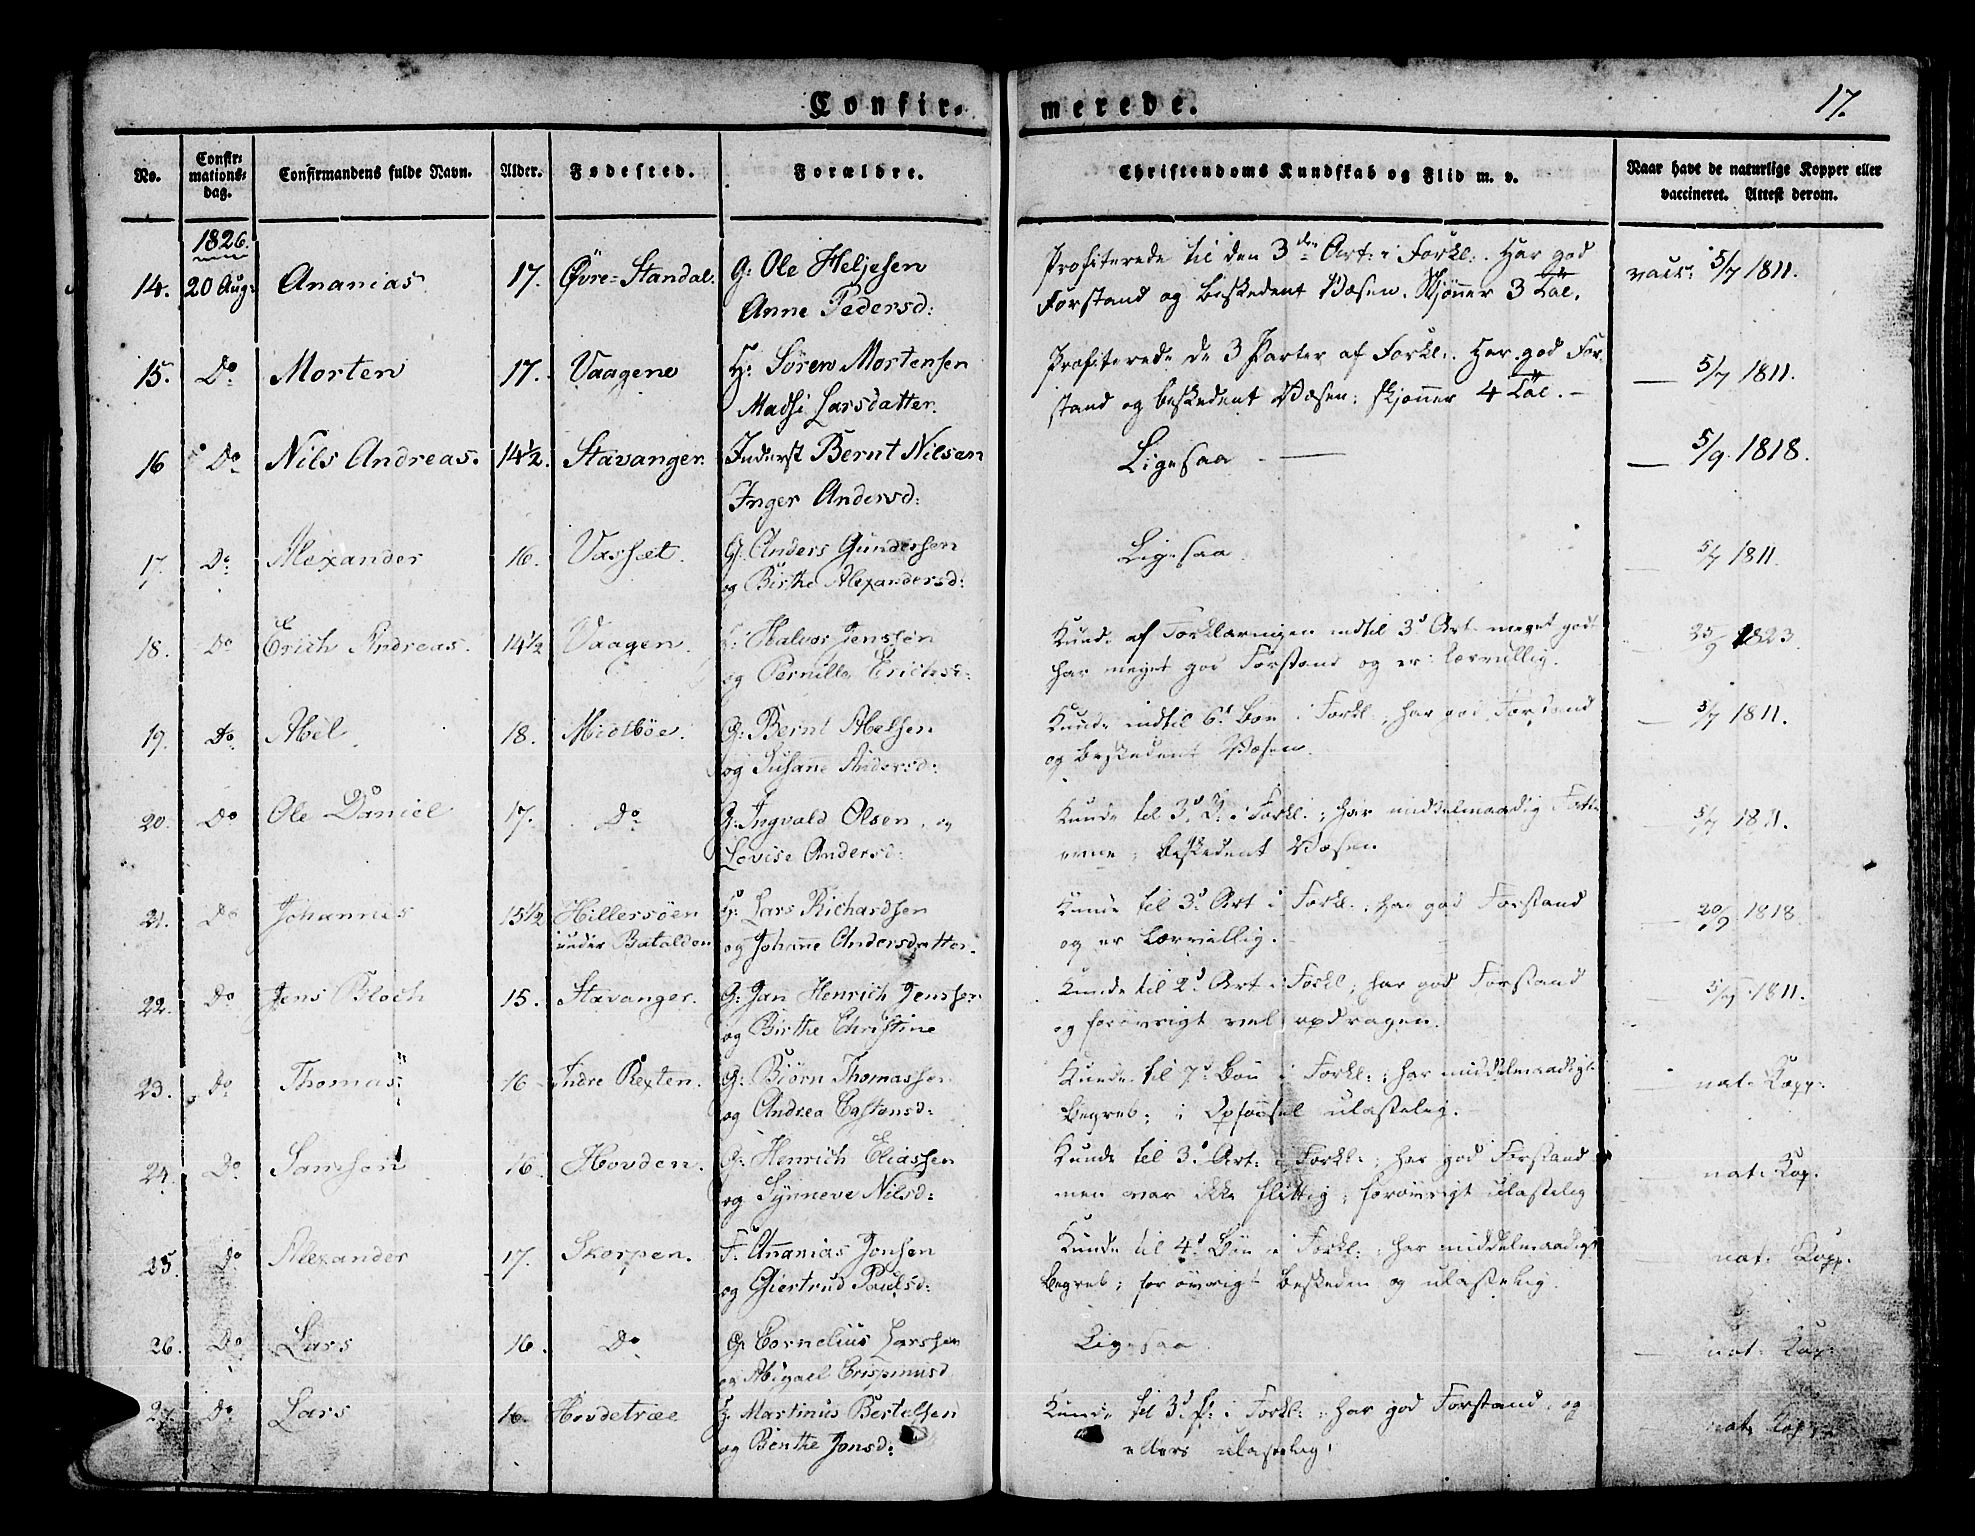 Confir- merede. 17.
No. Confir-mations-dag. Confirmandens fulde Navn. Alder. Fødested. Forældre. Christendoms Kundskab og Flid m. v. Naar havt de naturlige Kopper eller vaccineret. Attest derom.
1826.
14. 20 Aug: Ananias. 17. Øvre-Standal. G: Ole Heljesen Profiterede til den 3die Art: i Forkl:. Har god vacc: 5/7 1811.
Anne Pedersd: Forstand og beskedent Væsen. Skjønner 3 Tal.
15. Do Morten 17. Vaagene H: Sören Mortensen Profiterede de 3 Parter af Forkl:. Har god For- — 5/7 1811.
Madsi Larsdatter. stand og beskedent Væsen; skjønner 4 Tal. —
16 Do Nils Andreas. 14½. Stavanger. Inderst Bernt Nilsen Ligesaa — 5/9 1818.
Inger Andersd:
17. Do Alexander 16. Vasset. G: Anders Gundersen Ligesaa 5/7 1811.
og Birthe Alexandersd:
18. Do Erich Andreas. 14½ Vaagen. H: Halvor Jenssen Kunde af Forklaringen indtil 3d Art. meget godt 25/9 1823.
og Pernille Erichsd: har meget god Forstand og er lærvillig.
19. Do Abel 18. Midtböe. G: Bernt Abelsen Kunde indtil 6d Bön i Forkl., har god Forstand — 5/7 1811.
og Susane Andersd: og beskedent Væsen.
20. Do Ole Daniel 17. Do G: Ingvald Olsen, og Kunde til 3d P. i Forkl:; har middelmaadig 5/7 1811.
Lovise Andersd: evne; beskedent Væsen
21. Do Johannes 15½ Hillersöen H: Lars Richardsen Kunde til 3d Art i Forkl., har god Forstand 20/9 1818
under Batalden og Johanne Andersdatter. og er lærvillig.
22. Do Jens Bloch 15. Stavanger. G: Jan Henrich Jenssen Kunde til 2d Art i Forkl; har god Forstand 5/7 1811.
og Birthe Christine og forövrigt vel opdragen.
23. Do Thomas 16 Indre Rexten. G: Biörn Thomassen Kunde til 7d Bön i Forkl:; har middelmaadigt — nat: Kopp:
og Andrea Castensd: Begreb; i Opförsel ulastelig.
24. Do Samson 16. Hovden. G: Henrich Eliassen Kunde til 3d Art: i Forkl:; har god Forstand nat: Kop.
og Synneve Nilsd: men var ikke flittig; forövrigt ulastelig
25. Do Alexander 17. Skorpen. F: Ananias Jonsen Kunde til 4d Bön i Forkl:; har middelmaadigt nat: Kopp.
og Giertrud Paulsd: Begreb; for övrigt beskeden og ulastelig.
26. Do Lars 16. Do G: Cornelius Larssen Ligesaa nat: Kop:
og Abigael Crispinusd
27. Do Lars 16. Hovdetræe H: Martinus Bertelsen Kunde til 3d P: i Forkl:; har god Forstand og nat: Kop:
og Benthe Jonsd: ellers ulastelig.